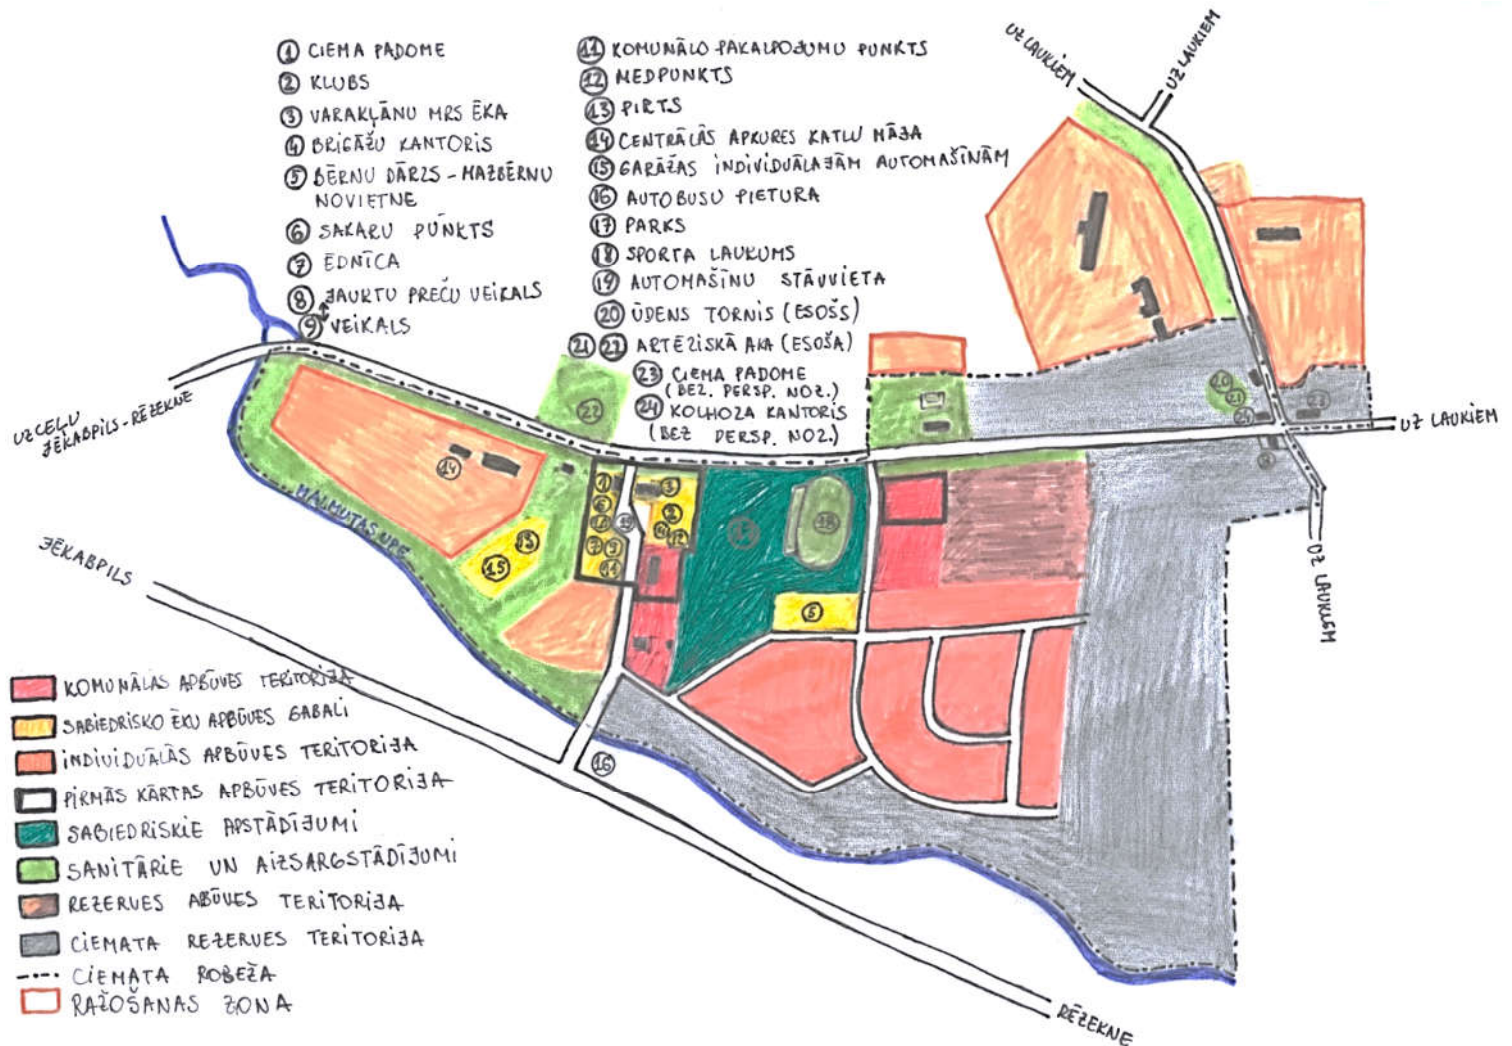 ① CIEMA PADOME
② KLUBS
③ VARAKĻĀNU MRS ĒKA
④ BRIGĀŽU KANTORIS
⑤ BĒRNU DĀRZS - MAZBĒRNU
NOVIETNE
⑥ SAKARU PUNKTS
⑦ ĒDNĪCA
⑧ JAUKTU PREČU VEIKALS
⑨ VEIKALS
⑪ KOMUNĀLO PAKALPOJUMU PUNKTS
⑫ MEDPUNKTS
⑬ PIRTS
⑭ CENTRĀLĀS APKURES KATLU MĀJA
⑮ GARĀŽAS INDIVIDUĀLAJĀM AUTOMAŠĪNĀM
⑯ AUTOBUSU PIETURA
⑰ PARKS
⑱ SPORTA LAUKUMS
⑲ AUTOMAŠĪNU STĀVVIETA
⑳ ŪDENS TORNIS (ESOŠS)
㉑ ㉒ ARTĒZISKĀ AKA (ESOŠA)
㉓ CIEMA PADOME
(BEZ. PERSP. NOZ.)
㉔ KOLHOZA KANTORIS
(BEZ PERSP. NOZ.)
UZ LAUKIEM
UZ LAUKIEM
UZ LAUKIEM
UZ LAUKIEM
UZ CEĻU
JĒKABPILS-RĒZEKNE
MALMUTAS UPE
JĒKABPILS
RĒZEKNE
⑭
㉒
⑬
⑮
①
⑥
⑦ ⑨
③
⑫
⑱
⑤
⑯
⑳
㉑
KOMUNĀLAS APBŪVES TERITORIJA
SABIEDRISKO ĒKU APBŪVES GABALI
INDIVIDUĀLĀS APBŪVES TERITORIJA
PIRMĀS KĀRTAS APBŪVES TERITORIJA
SABIEDRISKIE APSTĀDĪJUMI
SANITĀRIE UN AIZSARGSTĀDĪJUMI
REZERVES ABŪVES TERITORIJA
CIEMATA REZERVES TERITORIJA
CIEMATA ROBEŽA
RAŽOŠANAS ZONA